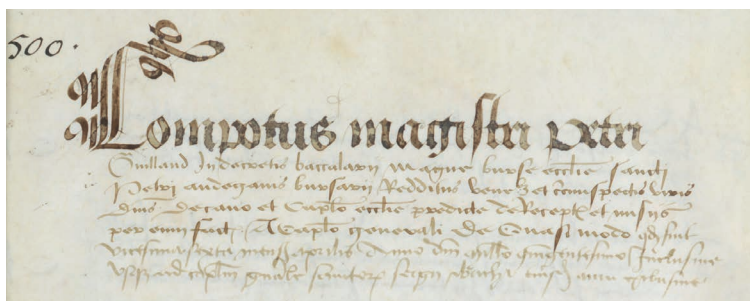 500.
Compotus magistri petri
Guilland In decretis baccalarii magne burse ecclie sancti
Petri andegavis bursarii Redditus vener et circumspectis viris
dnis decano et caplo ecclie predicte de Receptis et misiis
per eum fact A Caplo generali de Quasi modo
vicesima sexta mensis aprilis Anno dni millo quingentesimo Inclusive
usque ad caplm gnale anni exclusive